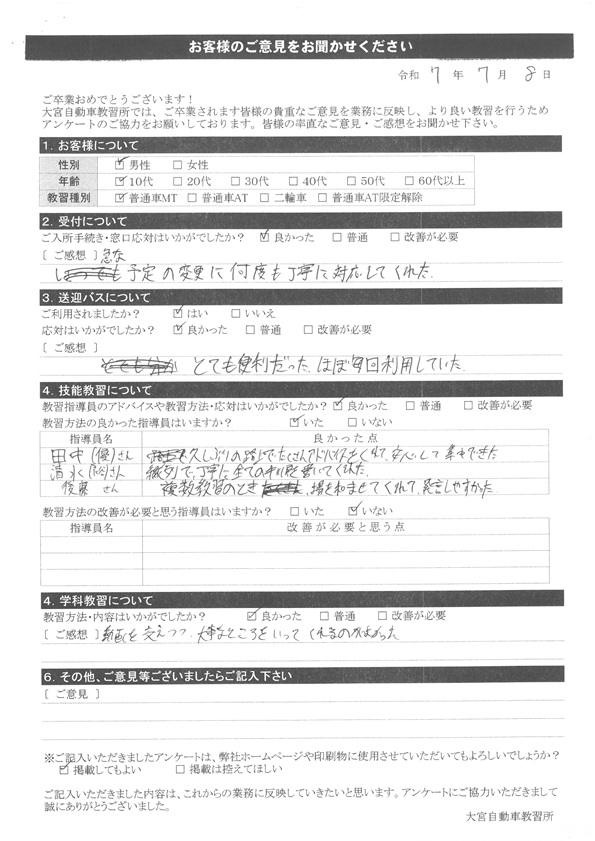 お客様のご意見をお聞かせください
令和 7 年 7 月 8 日
ご卒業おめでとうございます！
大宮自動車教習所では、ご卒業されます皆様の貴重なご意見を業務に反映し、より良い教習を行うため
アンケートのご協力をお願いしております。皆様の率直なご意見・ご感想をお聞かせ下さい。
1. お客様について
性別 ☑ 男性 □ 女性
年齢 ☑ 10代 □ 20代 □ 30代 □ 40代 □ 50代 □ 60代以上
教習種別 ☑ 普通車MT □ 普通車AT □ 二輪車 □ 普通車AT限定解除
2. 受付について
ご入所手続き・窓口応対はいかがでしたか？ ☑ 良かった □ 普通 □ 改善が必要
[ ご感想 ] 急な
予定の変更に何度も丁寧に対応してくれた.
3. 送迎バスについて
ご利用されましたか？ ☑ はい □ いいえ
応対はいかがでしたか？ ☑ 良かった □ 普通 □ 改善が必要
[ ご感想 ]
とても便利だった. ほぼ毎回利用していた.
4. 技能教習について
教習指導員のアドバイスや教習方法・応対はいかがでしたか？ ☑ 良かった □ 普通 □ 改善が必要
教習方法の良かった指導員はいますか？ ☑ いた □ いない
指導員名 良かった点
田中(優)さん 久しぶりの路上でたくさんアドバイスをくれて、安心して
清水 さん 丁寧に全ての
後藤 さん 複数教習のとき 場を和ませてくれて、発言しやすかった
教習方法の改善が必要と思う指導員はいますか？ □ いた ☑ いない
指導員名 改善が必要と思う点
4. 学科教習について
教習方法・内容はいかがでしたか？ ☑ 良かった □ 普通 □ 改善が必要
[ ご感想 ] 動画を交えつつ、大事なところをいってくれるのがよかった
6. その他、ご意見等ございましたらご記入下さい
[ ご意見 ]
※ご記入いただきましたアンケートは、弊社ホームページや印刷物に使用させていただいてもよろしいでしょうか？
☑ 掲載してもよい □ 掲載は控えてほしい
ご記入いただきました内容は、これからの業務に反映していきたいと思います。アンケートにご協力いただきまして
誠にありがとうございました。
大宮自動車教習所